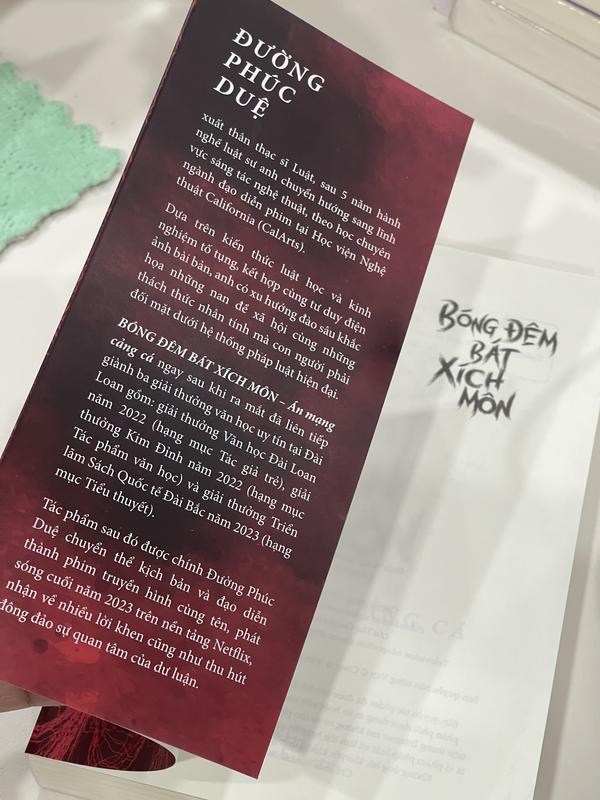 ĐƯỜNG
PHÚC
DUỆ
xuất thân thạc sĩ Luật, sau 5 năm hành
nghề luật sư anh chuyển hướng sang lĩnh
vực sáng tác nghệ thuật, theo học chuyên
ngành đạo diễn phim tại Học viện Nghệ
thuật California (CalArts).
Dựa trên kiến thức luật học và kinh
nghiệm tố tụng, kết hợp cùng tư duy điện
ảnh bài bản, anh có xu hướng đào sâu khắc
họa những nan đề xã hội cùng những
thách thức nhân tính mà con người phải
đối mặt dưới hệ thống pháp luật hiện đại.
BÓNG ĐÊM BÁT XÍCH MÔN – Án mạng
cảng cá ngay sau khi ra mắt đã liên tiếp
giành ba giải thưởng văn học uy tín tại Đài
Loan gồm: giải thưởng Văn học Đài Loan
năm 2022 (hạng mục Tác giả trẻ), giải
thưởng Kim Đỉnh năm 2022 (hạng mục
Tác phẩm văn học) và giải thưởng Triển
lãm Sách Quốc tế Đài Bắc năm 2023 (hạng
mục Tiểu thuyết).
Tác phẩm sau đó được chính Đường Phúc
Duệ chuyển thể kịch bản và đạo diễn
thành phim truyền hình cùng tên, phát
sóng cuối năm 2023 trên nền tảng Netflix,
nhận về nhiều lời khen cũng như thu hút
đông đảo sự quan tâm của dư luận.
BÓNG ĐÊM
BÁT
XÍCH
MÔN